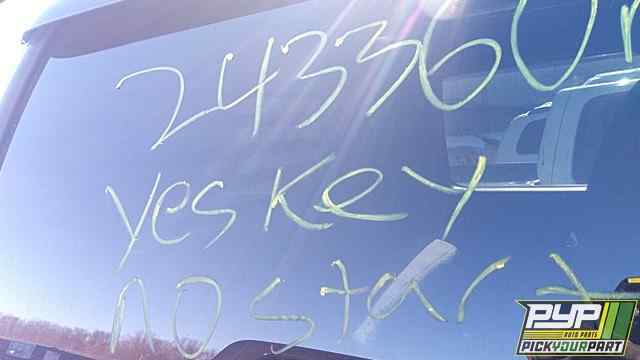 243360
yes key
no start
PYP
AUTO PARTS
PICKYOURPART